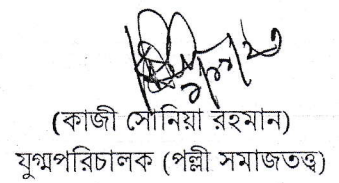 (কাজী সোনিয়া রহমান)
যুগ্মপরিচালক (পল্লী সমাজতত্ত্ব)